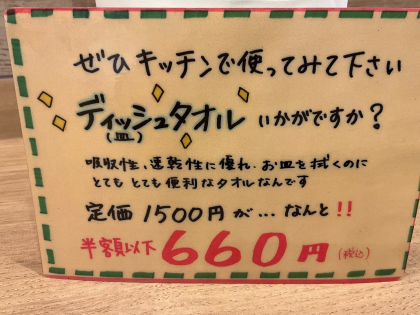 ぜひ キッチンで使ってみて下さい
ディッシュタオル いかがですか？
(皿)
吸収性、速乾性に優れ、お皿を拭くのに
とても とても便利なタオルなんです
定価 1500円が…なんと!!
半額以下 660円(税込)